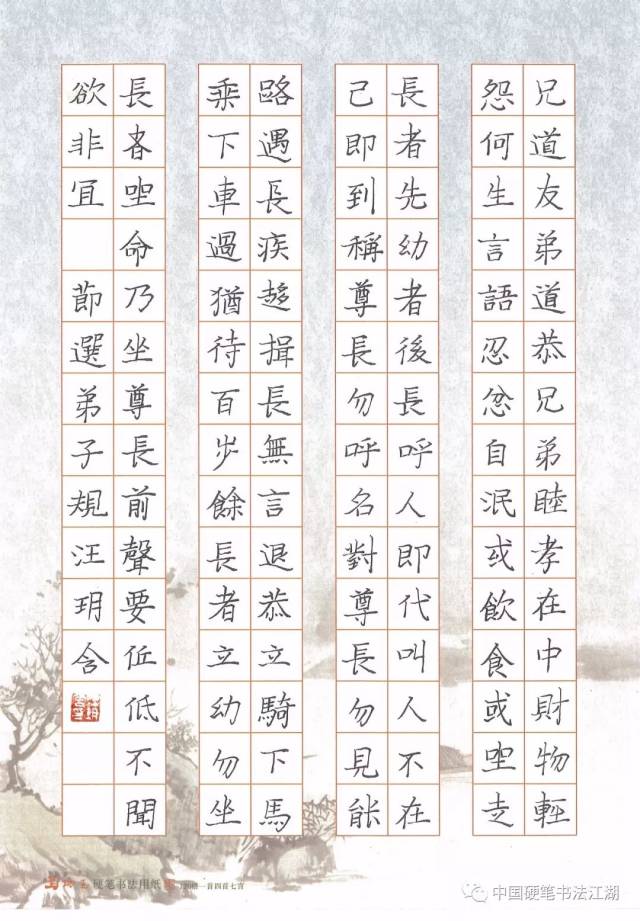 兄道友弟道恭兄弟睦孝在中財物輕
怨何生言語忍忿自泯或飲食或坐走
長者先幼者後長呼人即代叫人不在
己即到稱尊長勿呼名對尊長勿見能
路遇長疾趍揖長無言退恭立騎下馬
乘下車過猶待百步餘長者立幼勿坐
長者坐命乃坐尊長前聲要低低不聞
欲非宜 節選弟子規汪玥含
硬笔书法用纸
中国硬笔书法江湖